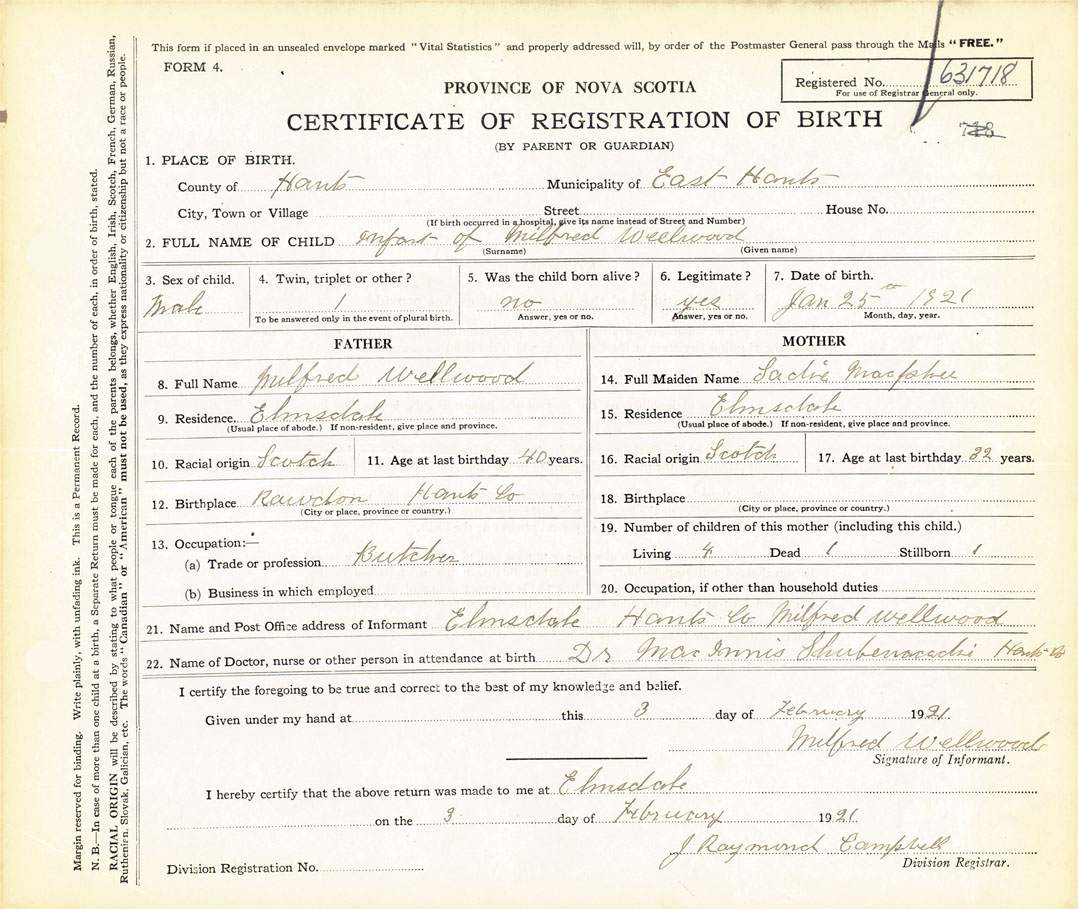 This form if placed in an unsealed envelope marked "Vital Statistics" and properly addressed will, by order of the Postmaster General pass through the Mails "FREE."
FORM 4.
Registered No. 631718
For use of Registrar General only.
PROVINCE OF NOVA SCOTIA
CERTIFICATE OF REGISTRATION OF BIRTH
(BY PARENT OR GUARDIAN)
1. PLACE OF BIRTH.
County of Hants Municipality of East Hants
City, Town or Village Street House No.
(If birth occurred in a hospital, give its name instead of Street and Number)
2. FULL NAME OF CHILD infant of Milfred Wellwood
(Surname) (Given name)
3. Sex of child. 4. Twin, triplet or other? 5. Was the child born alive? 6. Legitimate? 7. Date of birth.
Male 1 no yes Jan 25th 1921
To be answered only in the event of plural birth. Answer, yes or no. Answer, yes or no. Month, day, year.
FATHER
8. Full Name Milfred Wellwood
9. Residence. Elmsdale
(Usual place of abode.) If non-resident, give place and province.
10. Racial origin Scotch 11. Age at last birthday 40 years.
12. Birthplace Rawdon Hants Co
(City or place, province or country.)
13. Occupation:—
(a) Trade or profession Butcher
(b) Business in which employed
MOTHER
14. Full Maiden Name Sadie Macphee
15. Residence Elmsdale
(Usual place of abode.) If non-resident, give place and province.
16. Racial origin Scotch 17. Age at last birthday years.
18. Birthplace
(City or place, province or country.)
19. Number of children of this mother (including this child.)
Living 4 Dead 1 Stillborn 1
20. Occupation, if other than household duties
21. Name and Post Office address of Informant Elmsdale Hants Co Milfred Wellwood
22. Name of Doctor, nurse or other person in attendance at birth Dr MacInnis Shubenacadie Hants Co
I certify the foregoing to be true and correct to the best of my knowledge and belief.
Given under my hand at this 3 day of February 1921.
Milfred Wellwood
Signature of Informant.
I hereby certify that the above return was made to me at Elmsdale
on the 3 day of February 1921.
J Raymond Campbell
Division Registrar.
Division Registration No.
Margin reserved for binding. Write plainly, with unfading ink. This is a Permanent Record.
N. B.—In case of more than one child at a birth, a Separate Return must be made for each, and the number of each, in order of birth, stated.
RACIAL ORIGIN will be described by stating to what people or tongue each of the parents belongs, whether English, Irish, Scotch, French, German, Russian,
Ruthenien, Slovak, Galician, etc. The words "Canadian" or "American" must not be used, as they express nationality or citizenship but not a race or people.